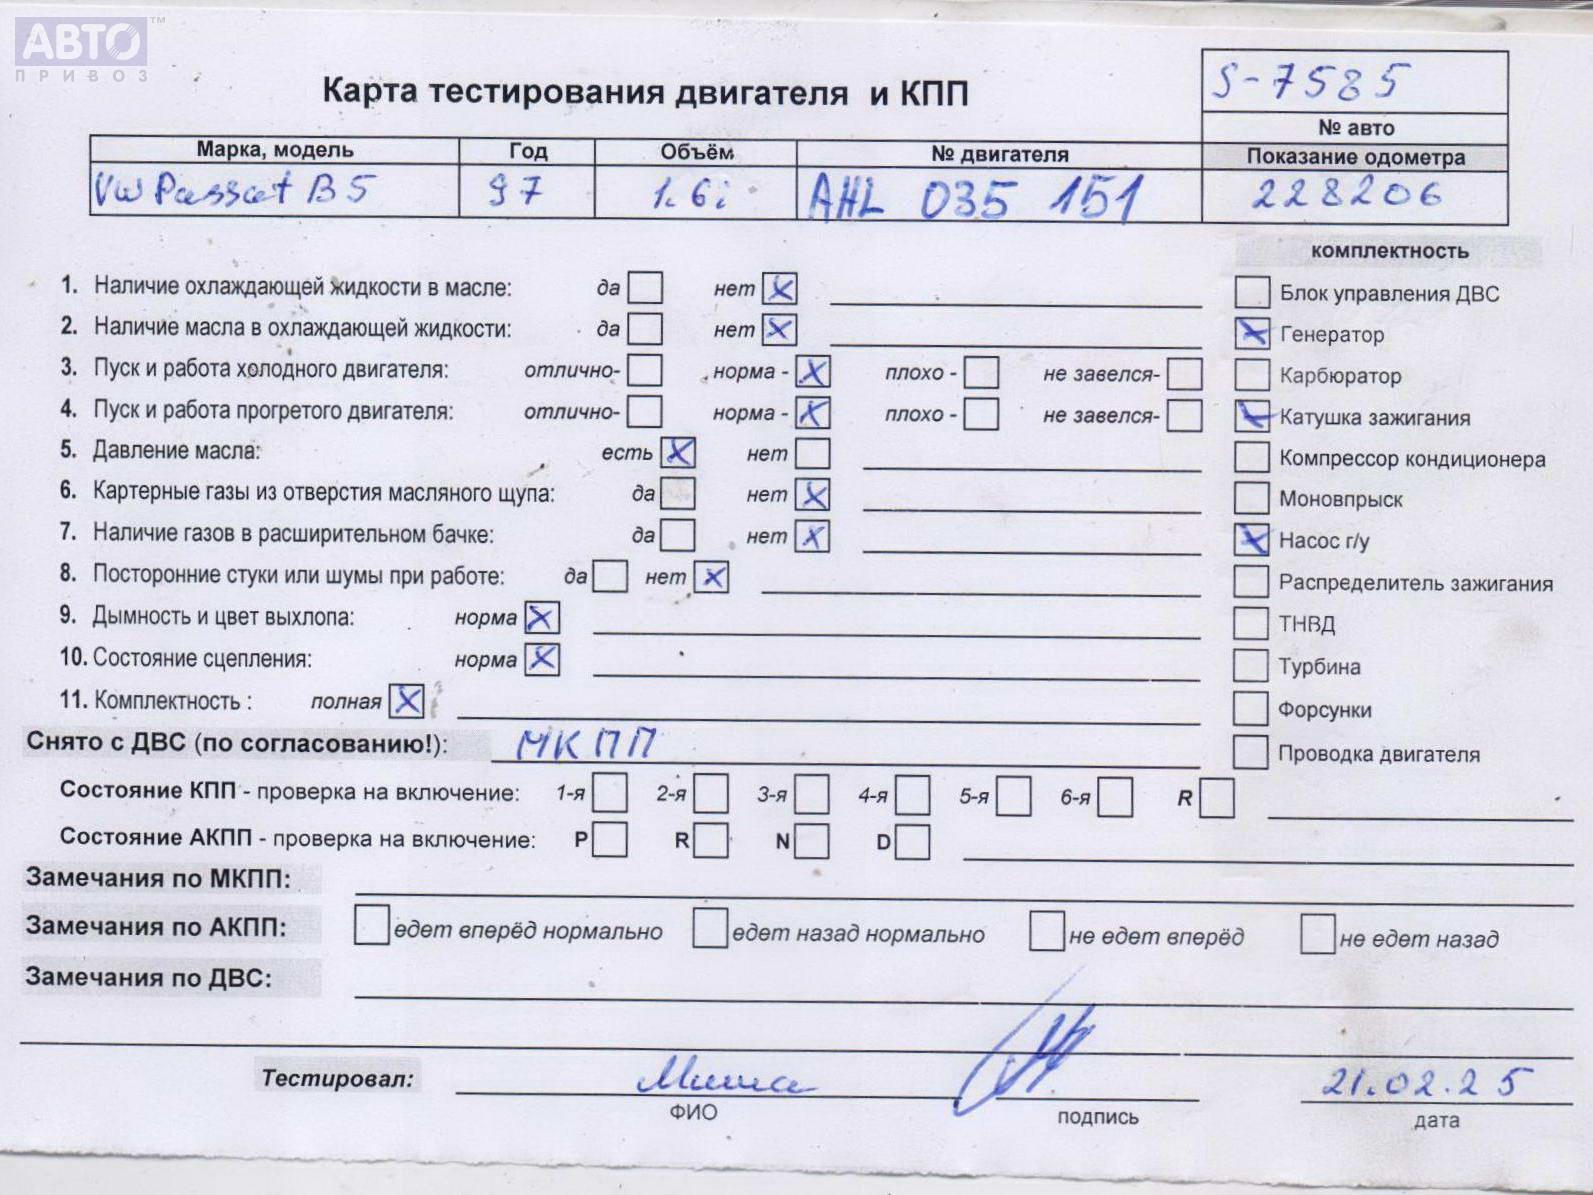 АВТО™
ПРИВОЗ
Карта тестирования двигателя и КПП
S-7585
№ авто
Марка, модель Год Объём № двигателя Показание одометра
VW Passat B5 97 1.6i AHL 035 151 228206
комплектность
1. Наличие охлаждающей жидкости в масле: да нет X
2. Наличие масла в охлаждающей жидкости: да нет X
3. Пуск и работа холодного двигателя: отлично- норма - X плохо - не завелся-
4. Пуск и работа прогретого двигателя: отлично- норма - X плохо - не завелся-
5. Давление масла: есть X нет
6. Картерные газы из отверстия масляного щупа: да нет X
7. Наличие газов в расширительном бачке: да нет X
8. Посторонние стуки или шумы при работе: да нет X
9. Дымность и цвет выхлопа: норма X
10. Состояние сцепления: норма X
11. Комплектность : полная X
Блок управления ДВС
X Генератор
Карбюратор
X Катушка зажигания
Компрессор кондиционера
Моновпрыск
X Насос г/у
Распределитель зажигания
ТНВД
Турбина
Форсунки
Проводка двигателя
Снято с ДВС (по согласованию!): МКПП
Состояние КПП - проверка на включение: 1-я 2-я 3-я 4-я 5-я 6-я R
Состояние АКПП - проверка на включение: P R N D
Замечания по МКПП:
Замечания по АКПП: едет вперёд нормально едет назад нормально не едет вперёд не едет назад
Замечания по ДВС:
Тестировал: Миша 21.02.25
ФИО подпись дата